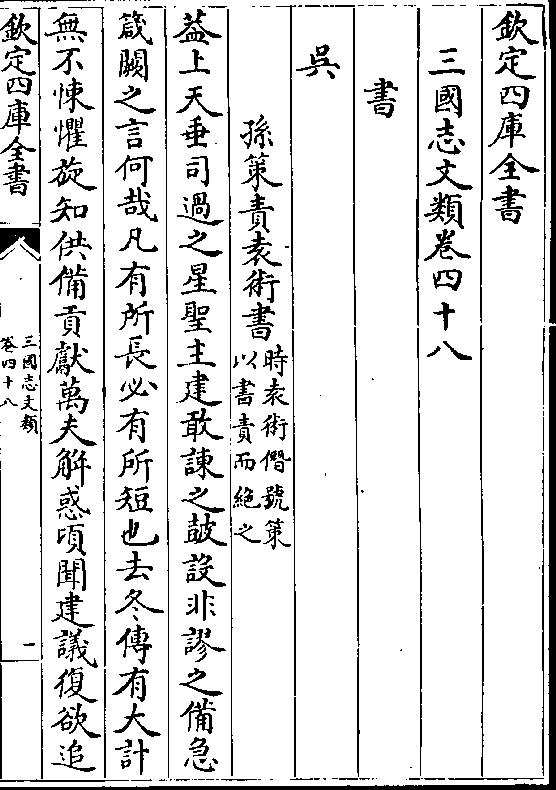 欽定四庫全書
三國志文類卷四十八
書
吳
孫策責袁術書時袁術僭號策
以書責而絶之
葢上天垂司過之星聖主建敢諫之鼓設非謬之備急
箴闕之言何哉凡有所長必有所短也去冬傳有大計
無不悚懼旋知供備貢獻萬夫解惑頃聞建議復欲追
欽定四庫全書
三國志文類
卷四十八
一